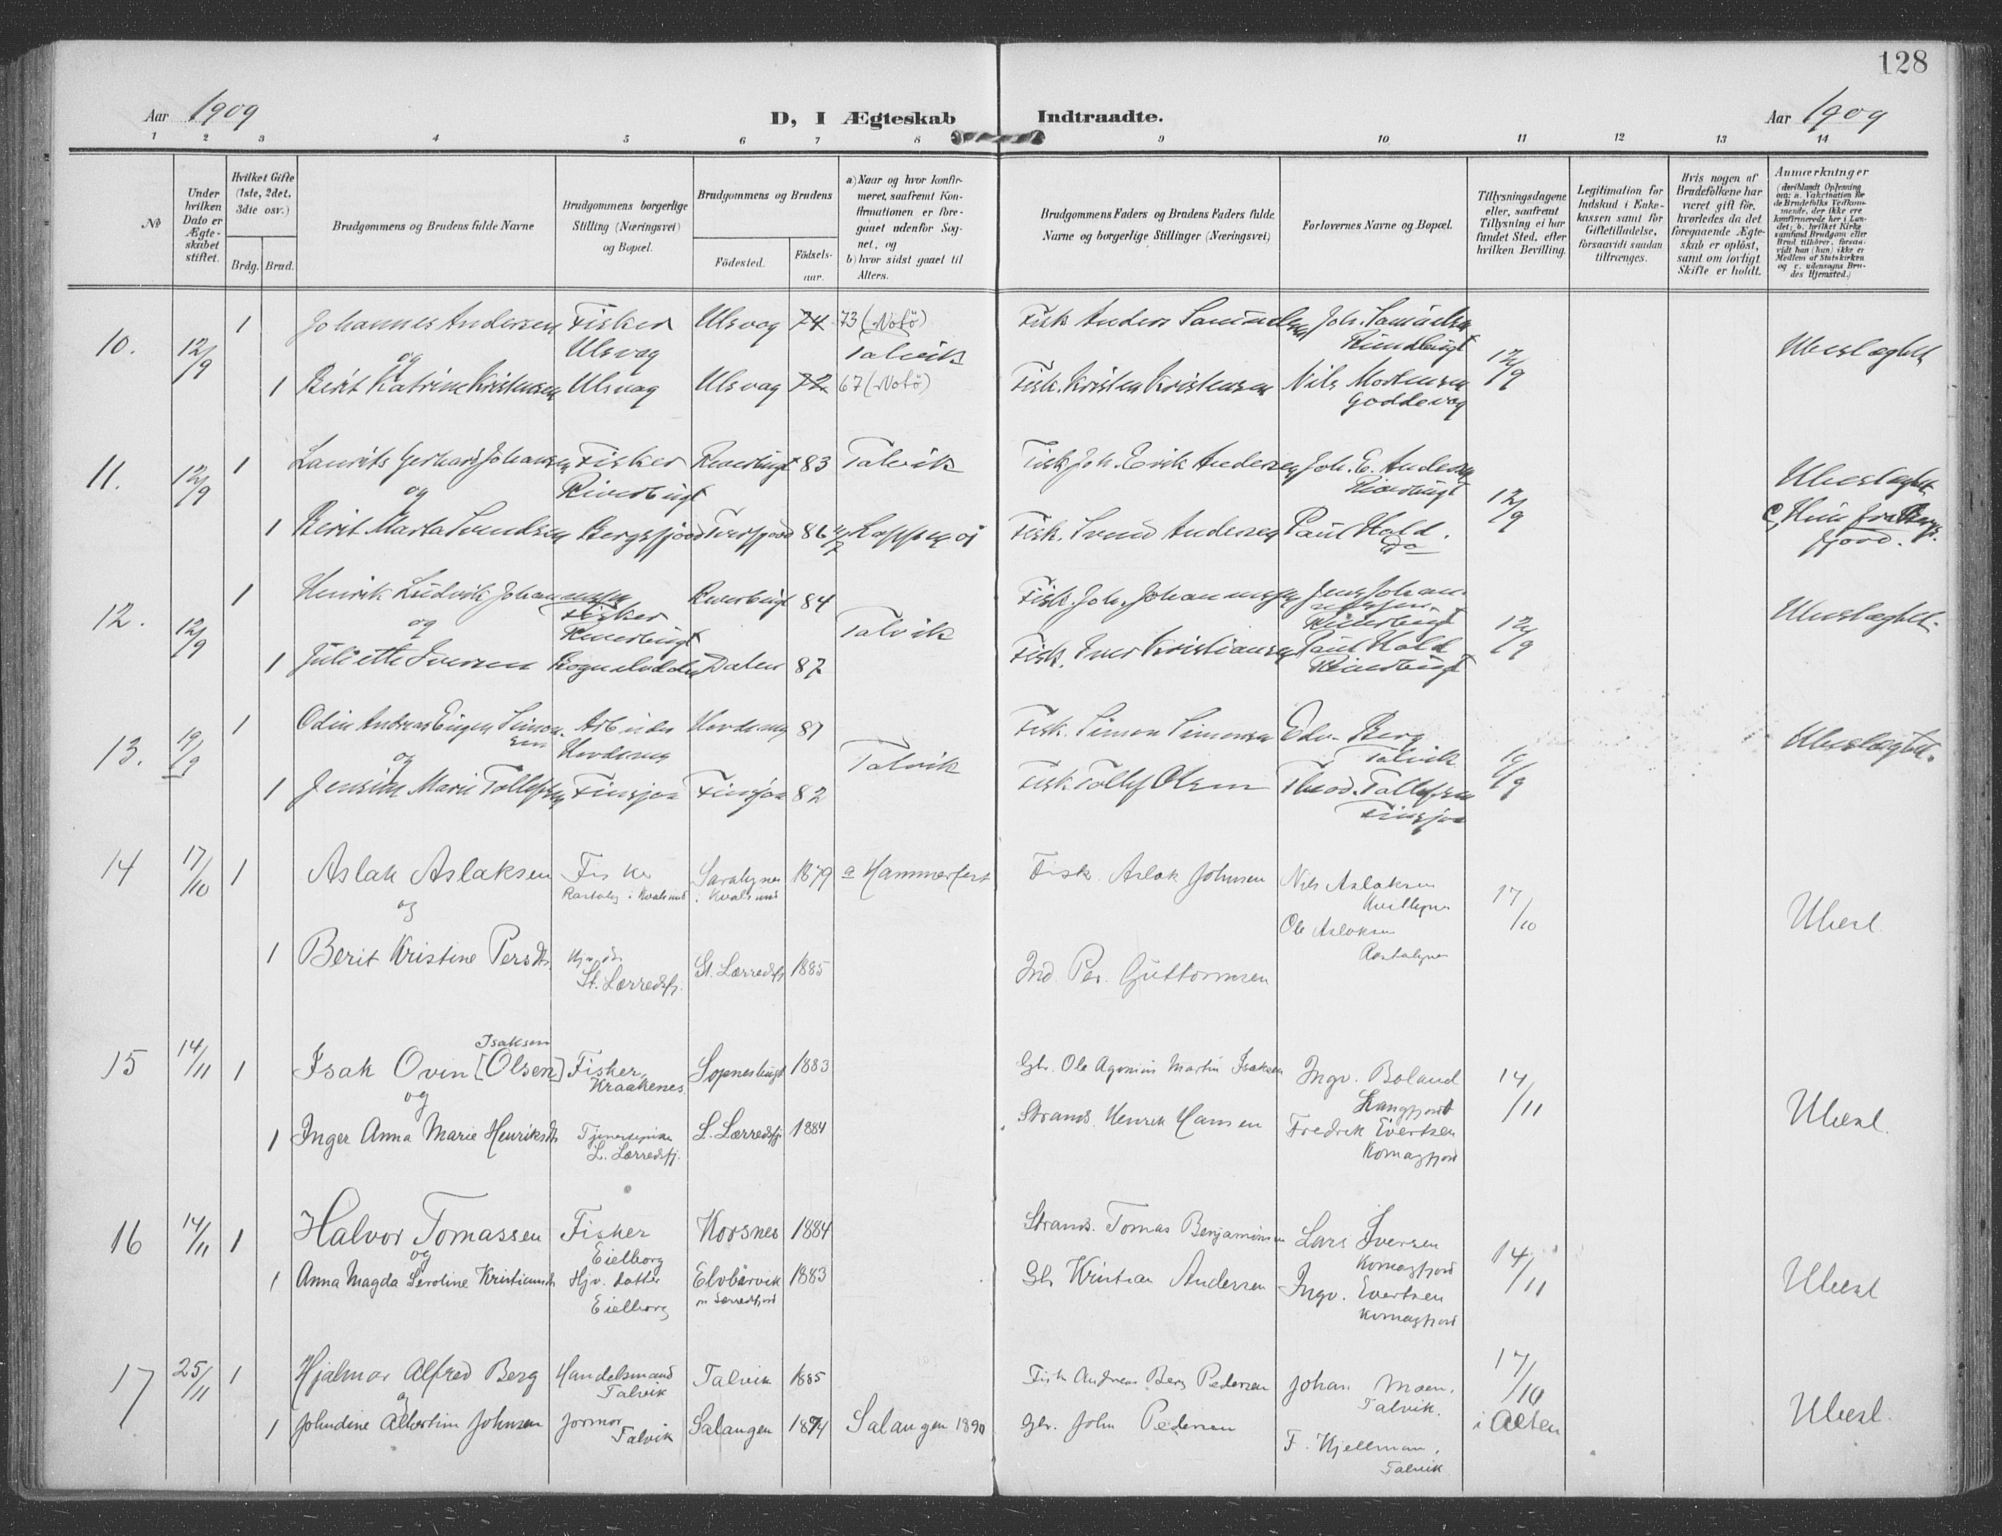 128
Aar 1909
D, I Ægteskab
Indtraadte.
Aar 1909
1 2 3 4 5 6 7 8 9 10 11 12 13 14
№
Under hvilken Dato er Ægteskabet stiftet.
Hvilket Gifte (1ste, 2det, 3die osv.)
Brdg. Brud.
Brudgommens og Brudens fulde Navne
Brudgommens borgerlige Stilling (Næringsvei) og Bopæl.
Brudgommens og Brudens
Fødested.
Fødselsaar.
a) Naar og hvor konfirmeret, saafremt Konfirmationen er foregaaet udenfor Sognet, og
b) hvor sidst gaaet til Alters.
Brudgommens Faders og Brudens Faders fulde Navne og borgerlige Stillinger (Næringsvei)
Forlovernes Navne og Bopæl.
Tillysningsdagene eller, saafremt Tillysning ei har fundet Sted, efter hvilken Bevilling.
Legitimation for Indskud i Enkekassen samt for Giftetilladelse, forsaavidt saadan tiltrænges.
Hvis nogen af Brudefolkene har været gift før, hvorledes da det foregaaende Ægteskab er opløst, samt om lovligt Skifte er holdt.
Anmærkninger
(deriblandt Oplysning om: a. Vakcination for de Brudefolks Vedkommende, der ikke ere konfirmerede her i Landet; b. hvilket Kirkesamfund Brudgom eller Brud tilhører, forsaavidt han (hun) ikke er Medlem af Statskirken og c. udensogns Brudes Hjemsted.)
10. 12/9 1 Johannes Andersen Fisker Ulsvag Ulsvag 74 73 (Notø) Fisk Anders Samuelsen Joh. Samuelsen
og Talvik 12/9 Ubeslægtet
1 Berit Katrine Kristensen Ulsvag Ulsvag 72 67 (Notø) Fisk. Kristen Kristensen Nils Mortensen Goddevag
11. 12/9 1 Laurits Gerhard Johansen Fisker 83 Talvik Fisk Joh. Erik Andersen Joh. E. Andersen
og 12/9 Ubeslægtet
1 Berit Marta Svendsen Bergsfjord Tverfjord 86 Fisk. Svend Andersen Paul Hald. do
12. 12/9 1 Henrik Ludvik Johannessen Fisker 84 Fisk. Joh. Johannessen Jens Johannessen
og Talvik 12/9 Ubeslægtet.
1 Juliette Iversen Dalen 87 Fisk. Iver Kristiansen Paul Hald
13. 19/9 1 Odin Andreas Eugen Simonsen Arbeider 87 Fisk. Simon Simonsen Edv. Berg Talvik
og Talvik 19/9 Ubeslægtet.
1 Jensine Marie Tollefsen 82 Fisk Tollef Olsen Theod. Tollefsen
14 17/10 1 Aslak Aslaksen Fisker i Kvalsund i Kvalsund 1879 a Hammerfest Fisk. Aslak Johnsen Nils Aslaksen
og Ole Aslaksen 17/10 Ubesl.
1 Berit Kristine Persdtr. St. Lerredsfj. St. Lerredsfj 1885 Ind. Per. Guttormsen
15 14/11 1 Isak Ovin [Olsen] Isaksen Fisker Kraakenes Sopnesbugt 1883 Gbr. Ole Agonius Martin Isaksen Ingv. Boland Langfjord 14/11
og Ubesl.
1 Inger Anna Marie Henriksdtr Tjenestepike L. Lerredsfj. L. Lerredsfj 1884 Strands. Henrik Hansen Fredrik Evertsen Komagfjord
16 14/11 1 Halvor Tomassen Fisker Eielborg Korsnes 1884 Strands. Tomas Benjaminsen Lars Iversen Komagfjord 14/11
og Ubesl
1 Anna Magda Seroline Kristiansdtr Hjv. datter Eielborg Elvbarvik 1883 Gbr Kristian Andersen Ingv. Evertsen Komagfjord
17 25/11 1 Hjalmar Alfred Berg Handelsmand Talvik Talvik 1885 Fisk Andreas Berg Pedersen Johan Moen, Talvik. 17/10 i Alten
og Ubesl.
1 Johndine Albertine Johnsen Jormor Talvik Salangen 1874 Salangen 1890 Gbr. John Pedersen F. Kjellman, Talvik